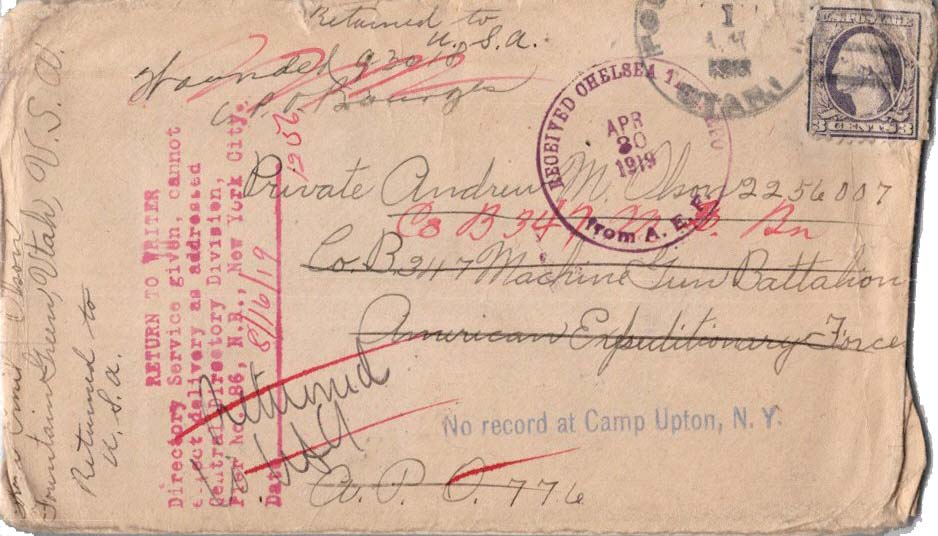 Returned to
U. S. A.
Wounded
A. P. O. Bourges
1
UTAH
U.S. POSTAGE
3 CENTS 3
RECEIVED CHELSEA
APR
30
1919
from A. E. F.
Private Andrew M. Olson 2256007
Co B 347 M. G. Bn
Co. B. 347 Machine Gun Battalion
American Expeditionary Force
A. P. O. 776
No record at Camp Upton, N. Y.
Returned
USA
RETURN TO WRITER
Directory Service given, cannot
effect delivery as addressed
Central Directory Division,
Pier No. 86, N.R., New York City.
Date 8/16/19 1956
Olson
Fountain Green, Utah, U. S. A.
Returned to
U. S. A.